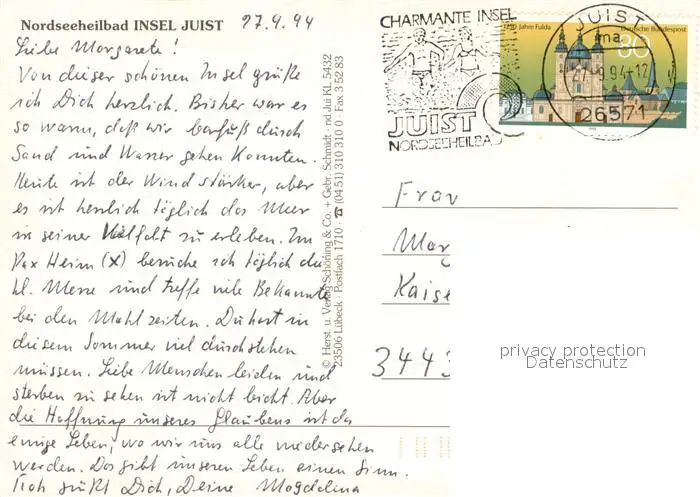 Nordseeheilbad INSEL JUIST 27.9.94
Liebe Margarete!
Von dieser schönen Insel grüße
ich Dich herzlich. Bisher war es
so warm, daß wir barfuß durch
Sand und Wasser gehen konnten.
Heute ist der Wind stärker, aber
es ist herrlich täglich das Meer
in seiner Vielfalt zu erleben. Im
Pax Heim (x) besuche ich täglich die
hl. Messe und treffe viele Bekannte
bei den Mahlzeiten. Du hast in
diesem Sommer viel durchstehen
müssen. Liebe Menschen leiden und
sterben zu sehen ist nicht leicht. Aber
die Hoffnung unseres Glaubens ist das
ewige Leben, wo wir uns alle wiedersehen
werden. Das gibt unserem Leben einen Sinn.
Es grüßt Dich, Deine Magdalena
© Herst. u. Verlag Schöning & Co. + Gebr. Schmidt · nd Jui KL 5432
23506 Lübeck · Postfach 1710 · ☎ (04 51) 310 310 0 · Fax 3 52 83
CHARMANTE INSEL
JUIST
NORDSEEHEILBAD
1250 Jahre Fulda
Deutsche Bundespost
80
JUIST
ma
26571
Frau
Mar
Kaise
3443
privacy protection
Datenschutz